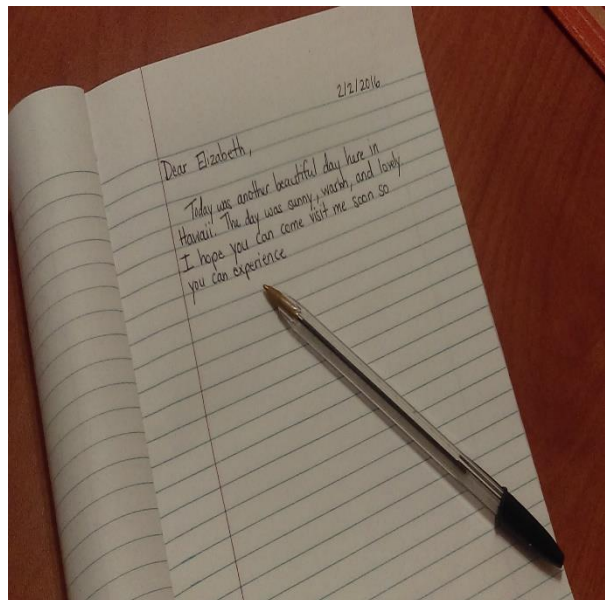 2/2/2016
Dear Elizabeth,
Today was another beautiful day here in
Hawaii. The day was sunny, warm, and lovely
I hope you can come visit me soon so
you can experience